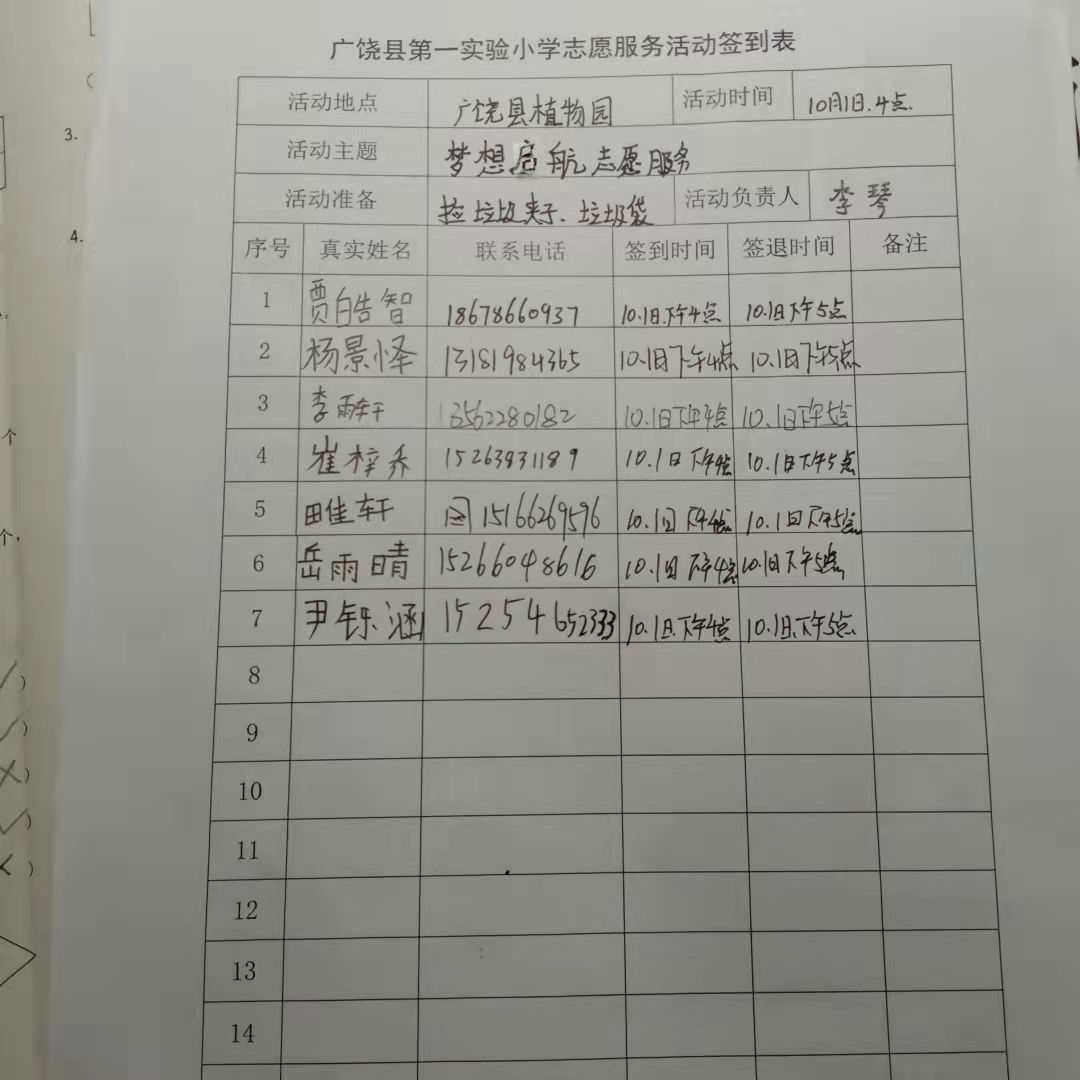 广饶县第一实验小学志愿服务活动签到表
活动地点 广饶县植物园 活动时间 10月1日.4点.
活动主题 梦想启航志愿服务
活动准备 捡垃圾夹子、垃圾袋 活动负责人 李琴
序号 真实姓名 联系电话 签到时间 签退时间 备注
1 贾皓智 18678660937 10.1日.下午4点 10.1日下午5点
2 杨景怿 13181984365 10.1日下午4点 10.1日下午5点
3 李雨轩 13562280182 10.1日下午4点 10.1日下午5点
4 崔梓乔 15263831189 10.1日下午4点 10.1日下午5点
5 15166269596 10.1日下午4点 10.1日下午5点
6 岳雨晴 15266048616 10.1日下午4点 10.1日下午5点
7 尹铄涵 15254652333 10.1日.下午4点 10.1日.下午5点
8
9
10
11
12
13
14
3.
4.
个
个,